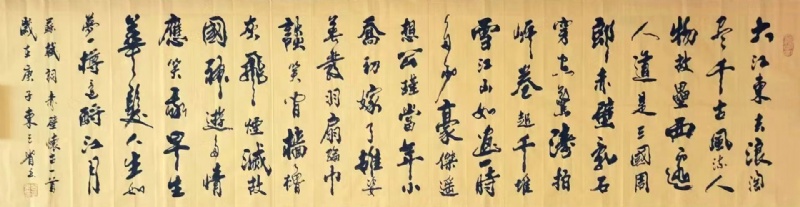 大江東去浪淘
盡千古風流人
物故壘西邊
人道是三國周
郎赤壁亂石
穿空驚濤拍
岸卷起千堆
雪江山如畫一時
多少豪傑遥
想公瑾當年小
喬初嫁了雄姿
英發羽扇綸巾
談笑間檣櫓
灰飛煙滅故
國神遊多情
應笑我早生
華髮人生如
夢一樽還酹江月
蘇軾詞赤壁懷古一首
歲在庚子東